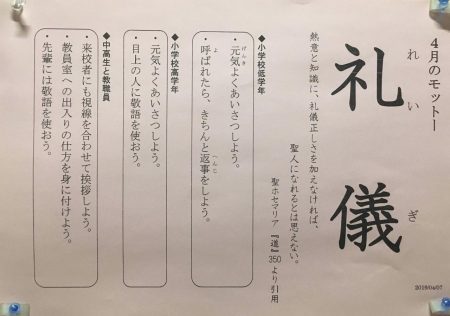 4月のモットー
礼儀
れいぎ
熱意と知識に、礼儀正しさを加えなければ、
聖人になれるとは思えない。
聖ホセマリア『道』350より引用
◆小学校低学年
・元気よくあいさつしよう。
げんき
・呼ばれたら、きちんと返事をしよう。
よ
へんじ
◆小学校高学年
・元気よくあいさつしよう。
・目上の人に敬語を使おう。
◆中高生と教職員
・来校者にも視線を合わせて挨拶しよう。
・教員室への出入りの仕方を身に付けよう。
・先輩には敬語を使おう。
2019/04/07